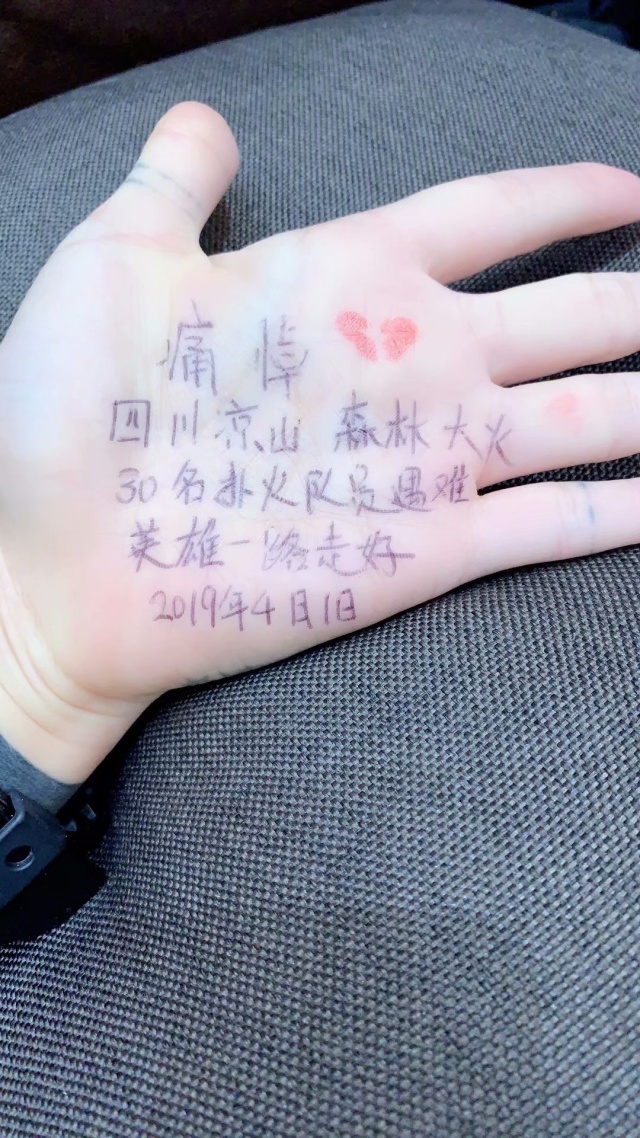 痛悼
四川凉山 森林大火
30名扑火队员遇难
英雄一路走好
2019年4月1日